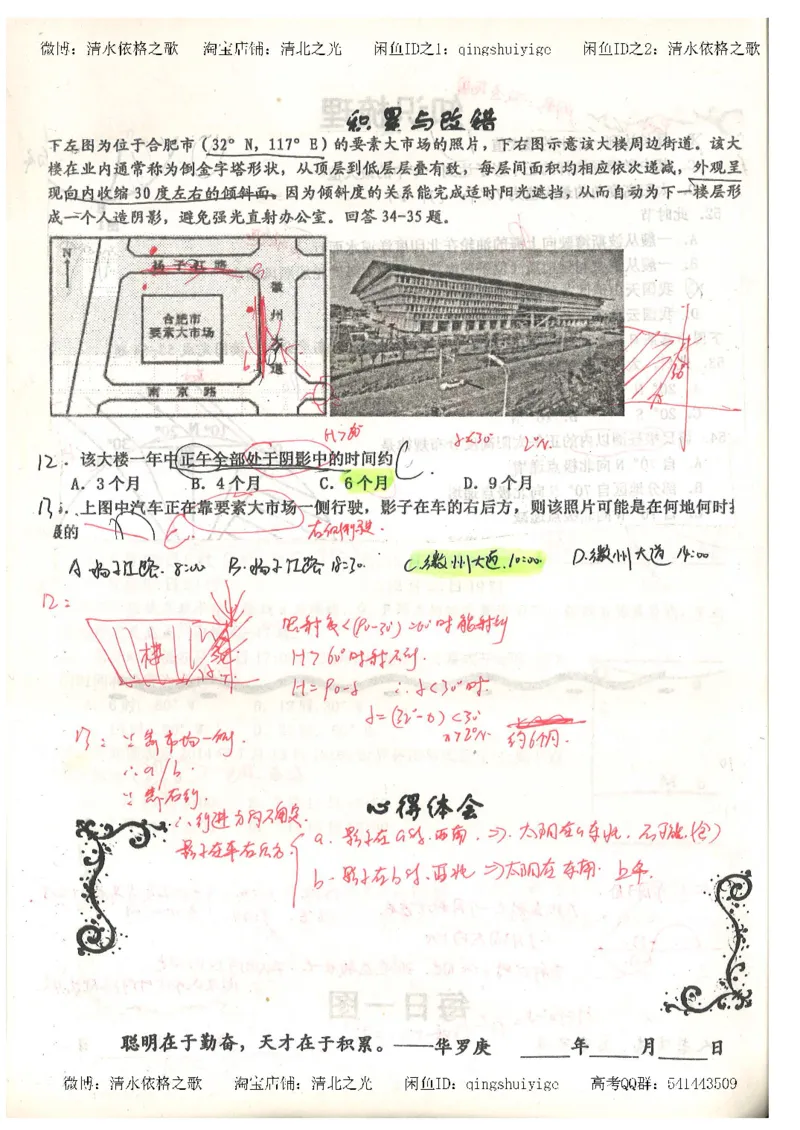 微博：清水依格之歌 淘宝店铺：清北之光 闲鱼ID之1：qingshuiyige 闲鱼ID之2：清水依格之歌
积累与改错
下左图为位于合肥市（32° N，117° E）的要素大市场的照片，下右图示意该大楼周边街道。该大
楼在业内通常称为倒金字塔形状，从顶层到低层层叠有致，每层间面积均相应依次递减，外观呈
现向内收缩 30 度左右的倾斜面。因为倾斜度的关系能完成适时阳光遮挡，从而自动为下一楼层形
成一个人造阴影，避免强光直射办公室。回答 34-35 题。
N
扬子江路
合肥市
要素大市场
徽州大道
南京路
a
b
30°
H>60°
α<30°
12. 该大楼一年中正午全部处于阴影中的时间约 C.
A. 3 个月 B. 4 个月 C. 6 个月 D. 9 个月
13. 上图中汽车正在靠要素大市场一侧行驶，影子在车的右后方，则该照片可能是在何地何时
的 C.
右侧行驶.
A 扬子江路. 8:00 B. 扬子江路 18:30 C. 徽州大道. 10:00 D. 徽州大道 14:00
12：
楼
H>60°时射不到.
H=90-α ∴α<30°时.
约6个月.
13：∵靠市场一侧.
∴a/b.
∵靠右行.
影子在车右后方
b. 影子在b时. 西北 ⇒太阳在东南. 上午.
心得体会
聪明在于勤奋，天才在于积累。——华罗庚 ____年____月____日
微博：清水依格之歌 淘宝店铺：清北之光 闲鱼ID：qingshuiyige 高考QQ群：541443509